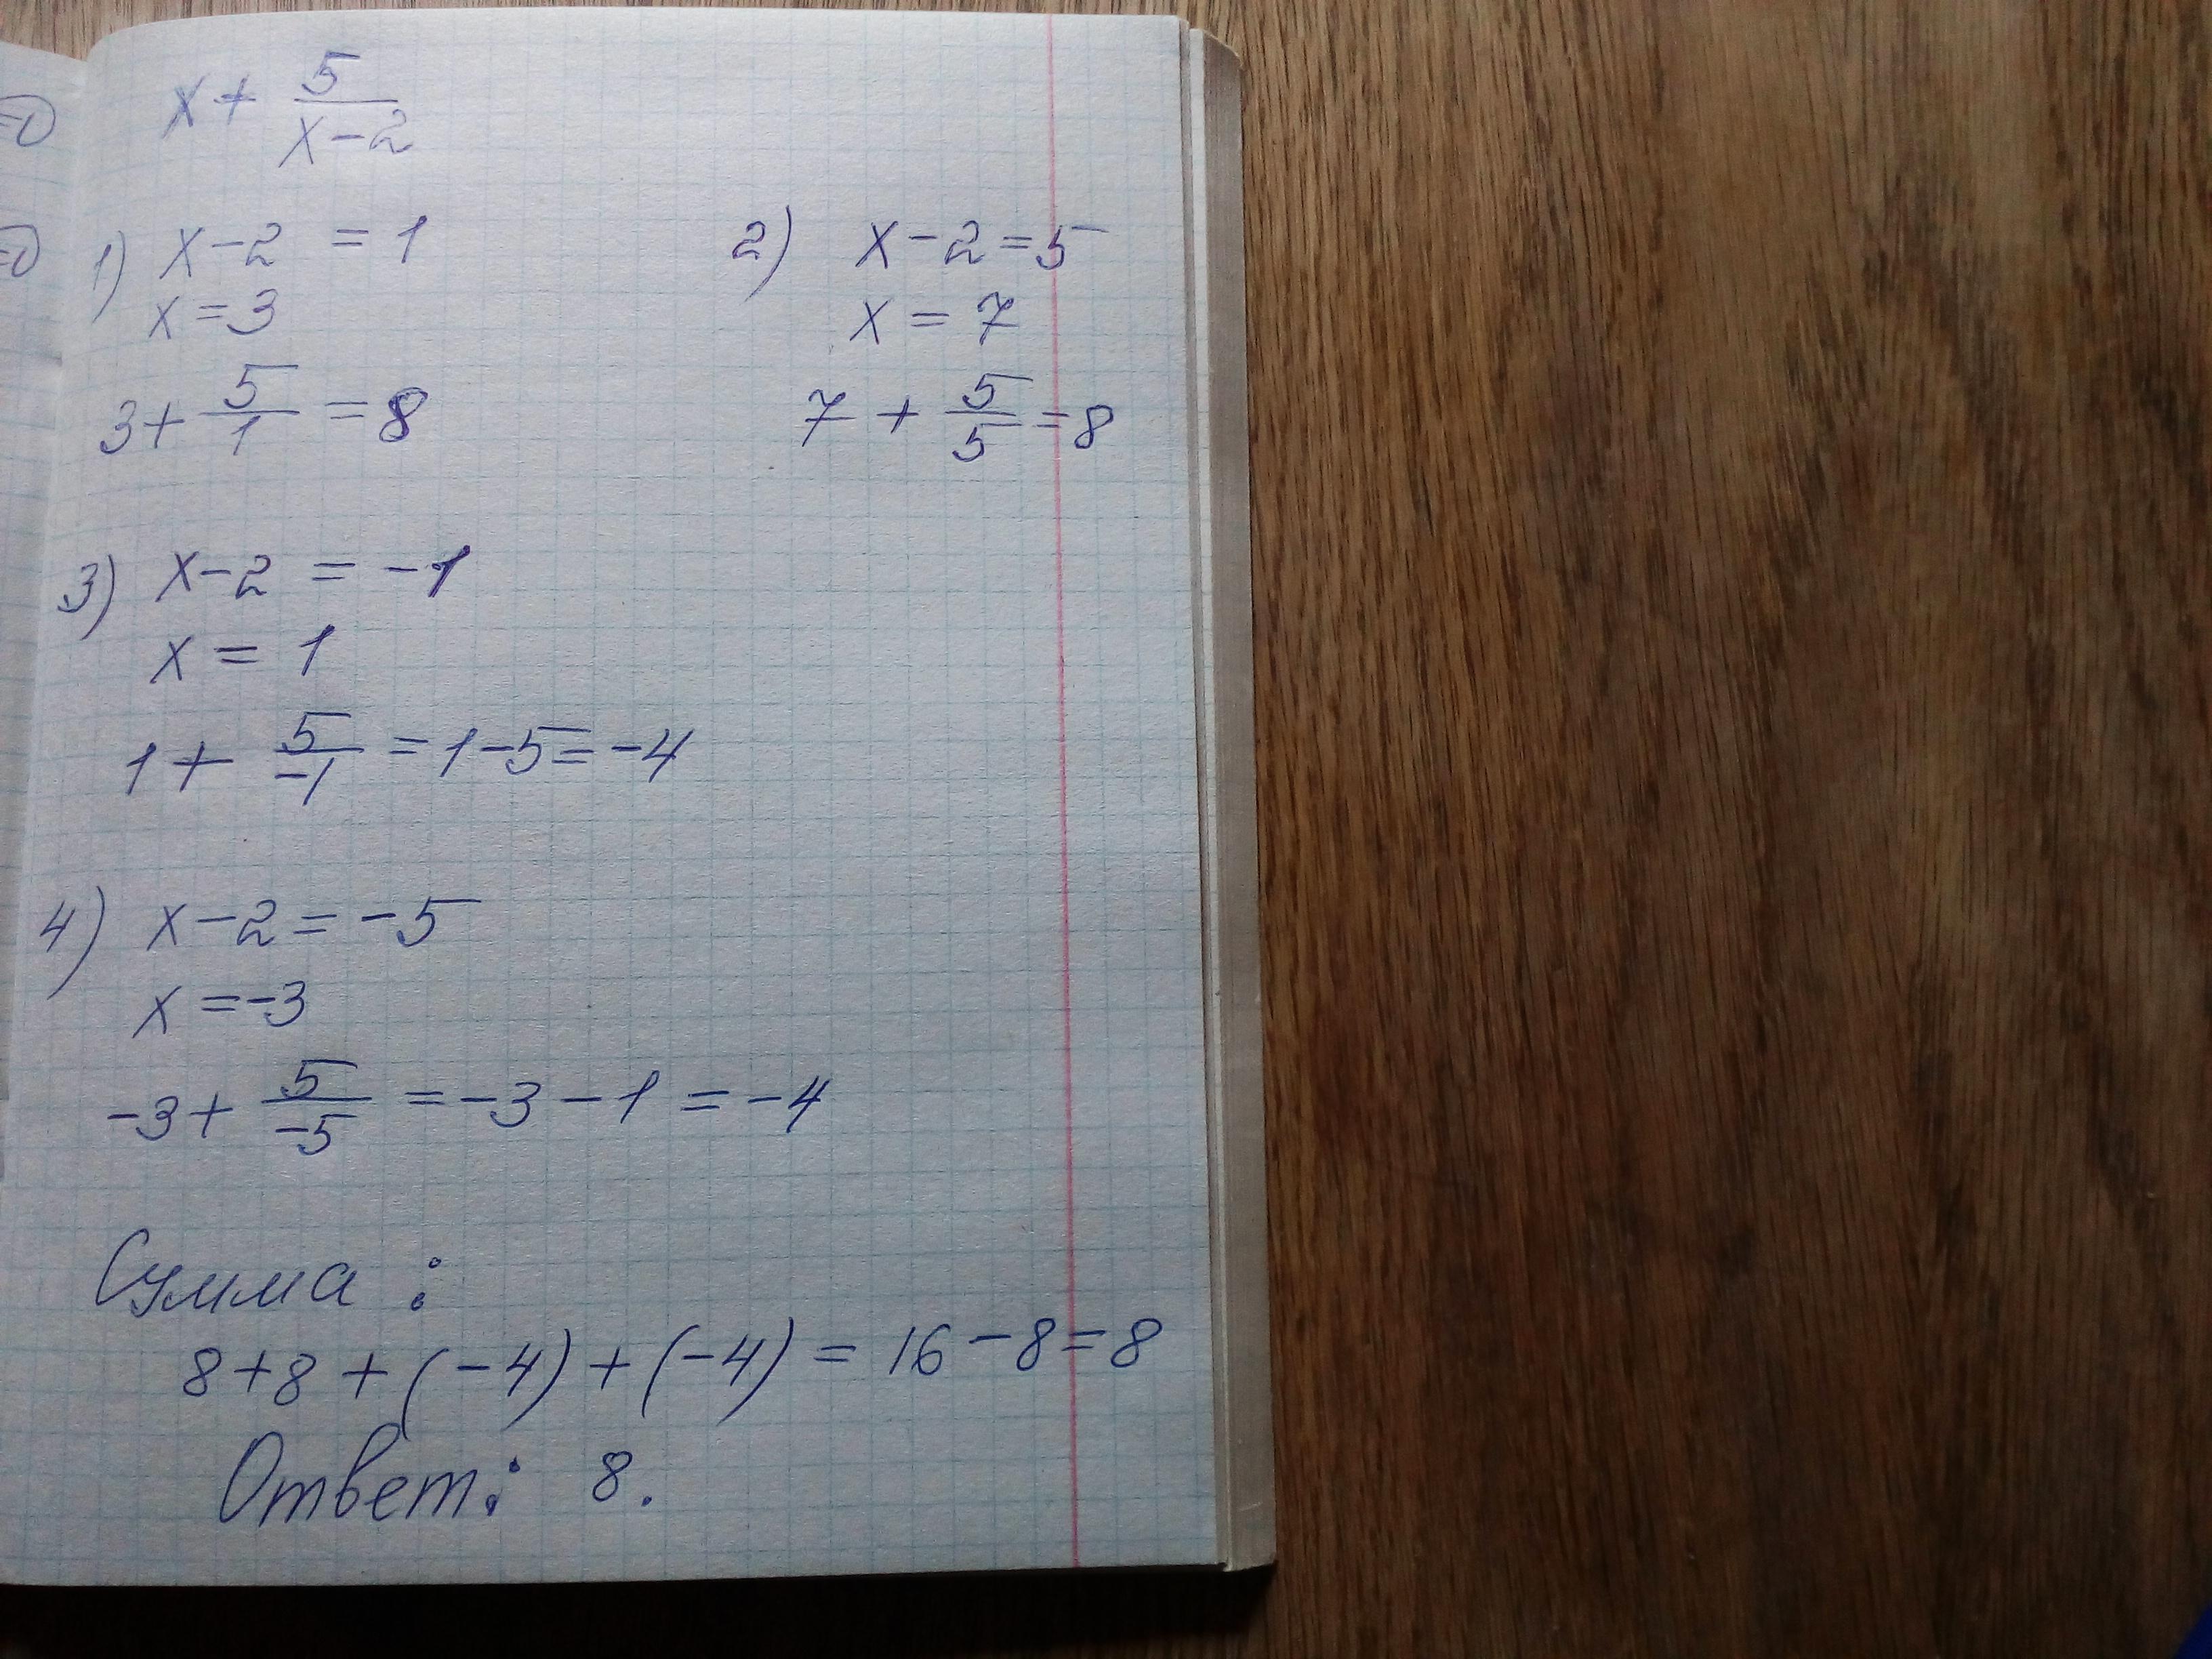 =0
=0
x + 5/(x-2)
1) x-2 = 1
x = 3
3 + 5/1 = 8
2) x-2 = 5
x = 7
7 + 5/5 = 8
3) x-2 = -1
x = 1
1 + 5/-1 = 1-5 = -4
4) x-2 = -5
x = -3
-3 + 5/-5 = -3-1 = -4
Сумма :
8+8+(-4)+(-4) = 16-8=8
Ответ: 8.